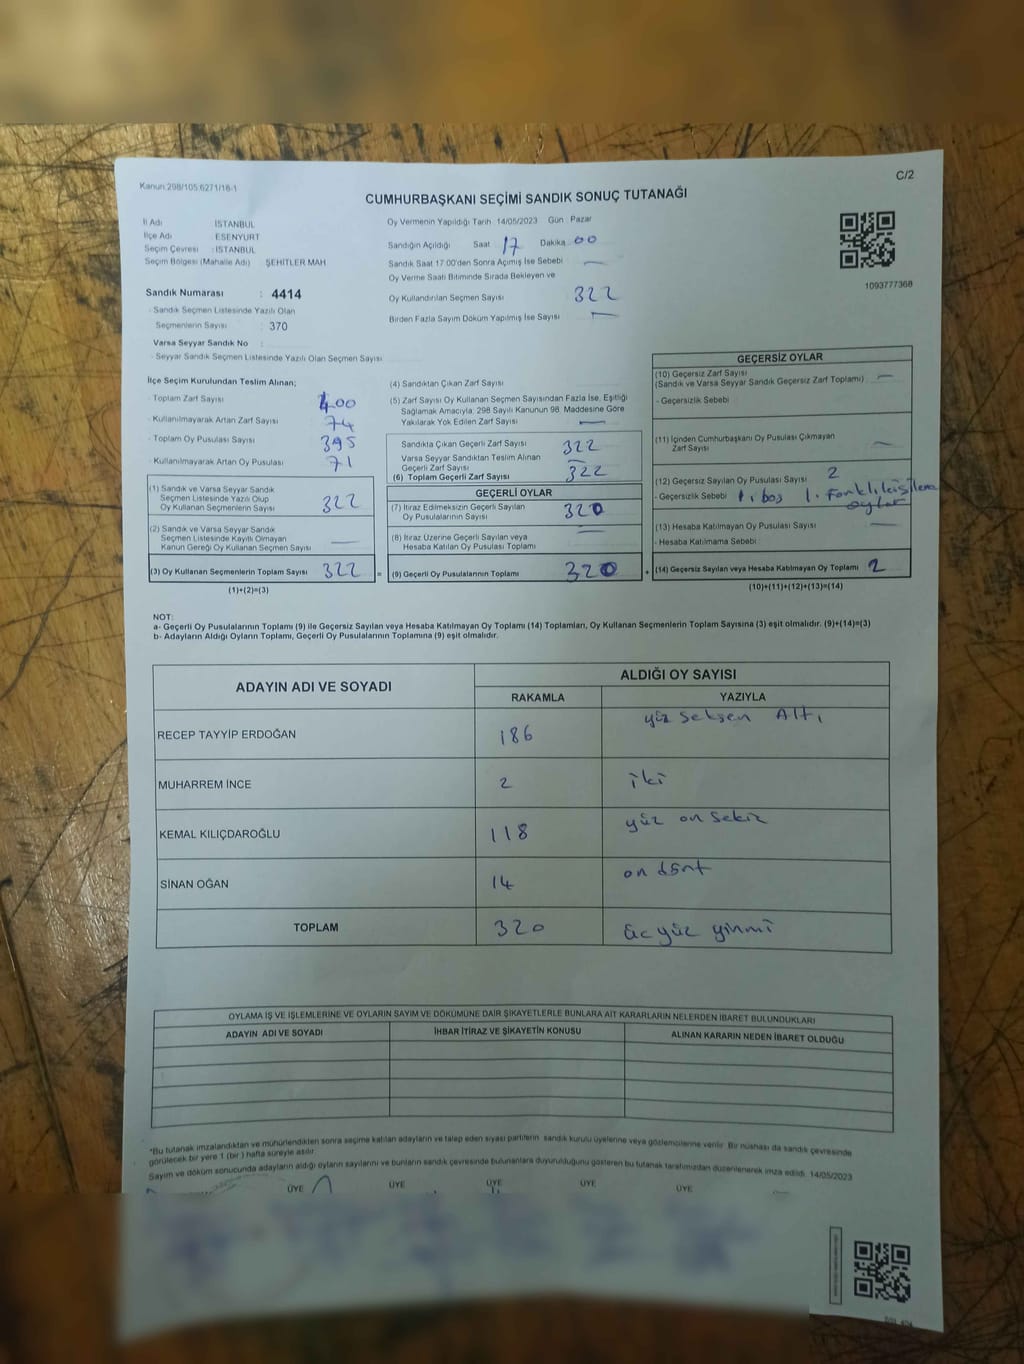 Kanun:298/105,6271/18-1
C/2
CUMHURBAŞKANI SEÇİMİ SANDIK SONUÇ TUTANAĞI
İl Adı İSTANBUL
İlçe Adı ESENYURT
Seçim Çevresi : İSTANBUL
Seçim Bölgesi (Mahalle Adı) ŞEHİTLER MAH
Sandık Numarası : 4414
- Sandık Seçmen Listesinde Yazılı Olan
Seçmenlerin Sayısı : 370
Varsa Seyyar Sandık No :
- Seyyar Sandık Seçmen Listesinde Yazılı Olan Seçmen Sayısı
Oy Vermenin Yapıldığı Tarih 14/05/2023 Gün : Pazar
Sandığın Açıldığı Saat 17 Dakika 00
Sandık Saat 17:00'den Sonra Açımış İse Sebebi —
Oy Verme Saati Bitiminde Sırada Bekleyen ve
Oy Kullandırılan Seçmen Sayısı 322
Birden Fazla Sayım Döküm Yapılmış İse Sayısı —
1093777368
İlçe Seçim Kurulundan Teslim Alınan;
- Toplam Zarf Sayısı 400
- Kullanılmayarak Artan Zarf Sayısı 74
- Toplam Oy Pusulası Sayısı 395
- Kullanılmayarak Artan Oy Pusulası 71
(1) Sandık ve Varsa Seyyar Sandık
Seçmen Listesinde Yazılı Olup
Oy Kullanan Seçmenlerin Sayısı 322
(2) Sandık ve Varsa Seyyar Sandık
Seçmen Listesinde Kayıtlı Olmayan
Kanun Gereği Oy Kullanan Seçmen Sayısı —
(3) Oy Kullanan Seçmenlerin Toplam Sayısı 322 =
(1)+(2)=(3)
(4) Sandıktan Çıkan Zarf Sayısı
(5) Zarf Sayısı Oy Kullanan Seçmen Sayısından Fazla İse, Eşitliği
Sağlamak Amacıyla; 298 Sayılı Kanunun 98. Maddesine Göre
Yakılarak Yok Edilen Zarf Sayısı —
Sandıkta Çıkan Geçerli Zarf Sayısı 322
Varsa Seyyar Sandıktan Teslim Alınan
Geçerli Zarf Sayısı —
(6) Toplam Geçerli Zarf Sayısı 322
GEÇERLİ OYLAR
(7) İtiraz Edilmeksizin Geçerli Sayılan
Oy Pusulalarının Sayısı 320
(8) İtiraz Üzerine Geçerli Sayılan veya
Hesaba Katılan Oy Pusulası Toplamı —
(9) Geçerli Oy Pusulalarının Toplamı 320 +
GEÇERSİZ OYLAR
(10) Geçersiz Zarf Sayısı —
(Sandık ve Varsa Seyyar Sandık Geçersiz Zarf Toplamı)
- Geçersizlik Sebebi
(11) İçinden Cumhurbaşkanı Oy Pusulası Çıkmayan
Zarf Sayısı —
(12) Geçersiz Sayılan Oy Pusulası Sayısı 2
- Geçersizlik Sebebi 1. boş 1. Farklı kişilere
oylar
(13) Hesaba Katılmayan Oy Pusulası Sayısı —
- Hesaba Katılmama Sebebi
(14) Geçersiz Sayılan veya Hesaba Katılmayan Oy Toplamı 2
(10)+(11)+(12)+(13)=(14)
NOT:
a- Geçerli Oy Pusulalarının Toplamı (9) ile Geçersiz Sayılan veya Hesaba Katılmayan Oy Toplamı (14) Toplamları, Oy Kullanan Seçmenlerin Toplam Sayısına (3) eşit olmalıdır. (9)+(14)=(3)
b- Adayların Aldığı Oyların Toplamı, Geçerli Oy Pusulalarının Toplamına (9) eşit olmalıdır.
ADAYIN ADI VE SOYADI ALDIĞI OY SAYISI
RAKAMLA YAZIYLA
RECEP TAYYİP ERDOĞAN 186 yüz seksen Altı
MUHARREM İNCE 2 iki
KEMAL KILIÇDAROĞLU 118 yüz on sekiz
SİNAN OĞAN 14 on dört
TOPLAM 320 üc yüz yirmi
OYLAMA İŞ VE İŞLEMLERİNE VE OYLARIN SAYIM VE DÖKÜMÜNE DAİR ŞİKAYETLERLE BUNLARA AİT KARARLARIN NELERDEN İBARET BULUNDUKLARI
ADAYIN ADI VE SOYADI İHBAR İTİRAZ VE ŞİKAYETİN KONUSU ALINAN KARARIN NEDEN İBARET OLDUĞU
*Bu tutanak imzalandıktan ve mühürlendikten sonra seçime katılan adayların ve talep eden siyasi partilerin sandık kurulu üyelerine veya gözlemcilerine verilir. Bir nüshası da sandık çevresinde
görülecek bir yere 1 (bir) hafta süreyle asılır.
Sayım ve döküm sonucunda adayların aldığı oyların sayılarını ve bunların sandık çevresinde bulunanlara duyurulduğunu gösteren bu tutanak tarafımızdan düzenlenerek imza edildi. 14/05/2023
ÜYE ÜYE ÜYE ÜYE ÜYE